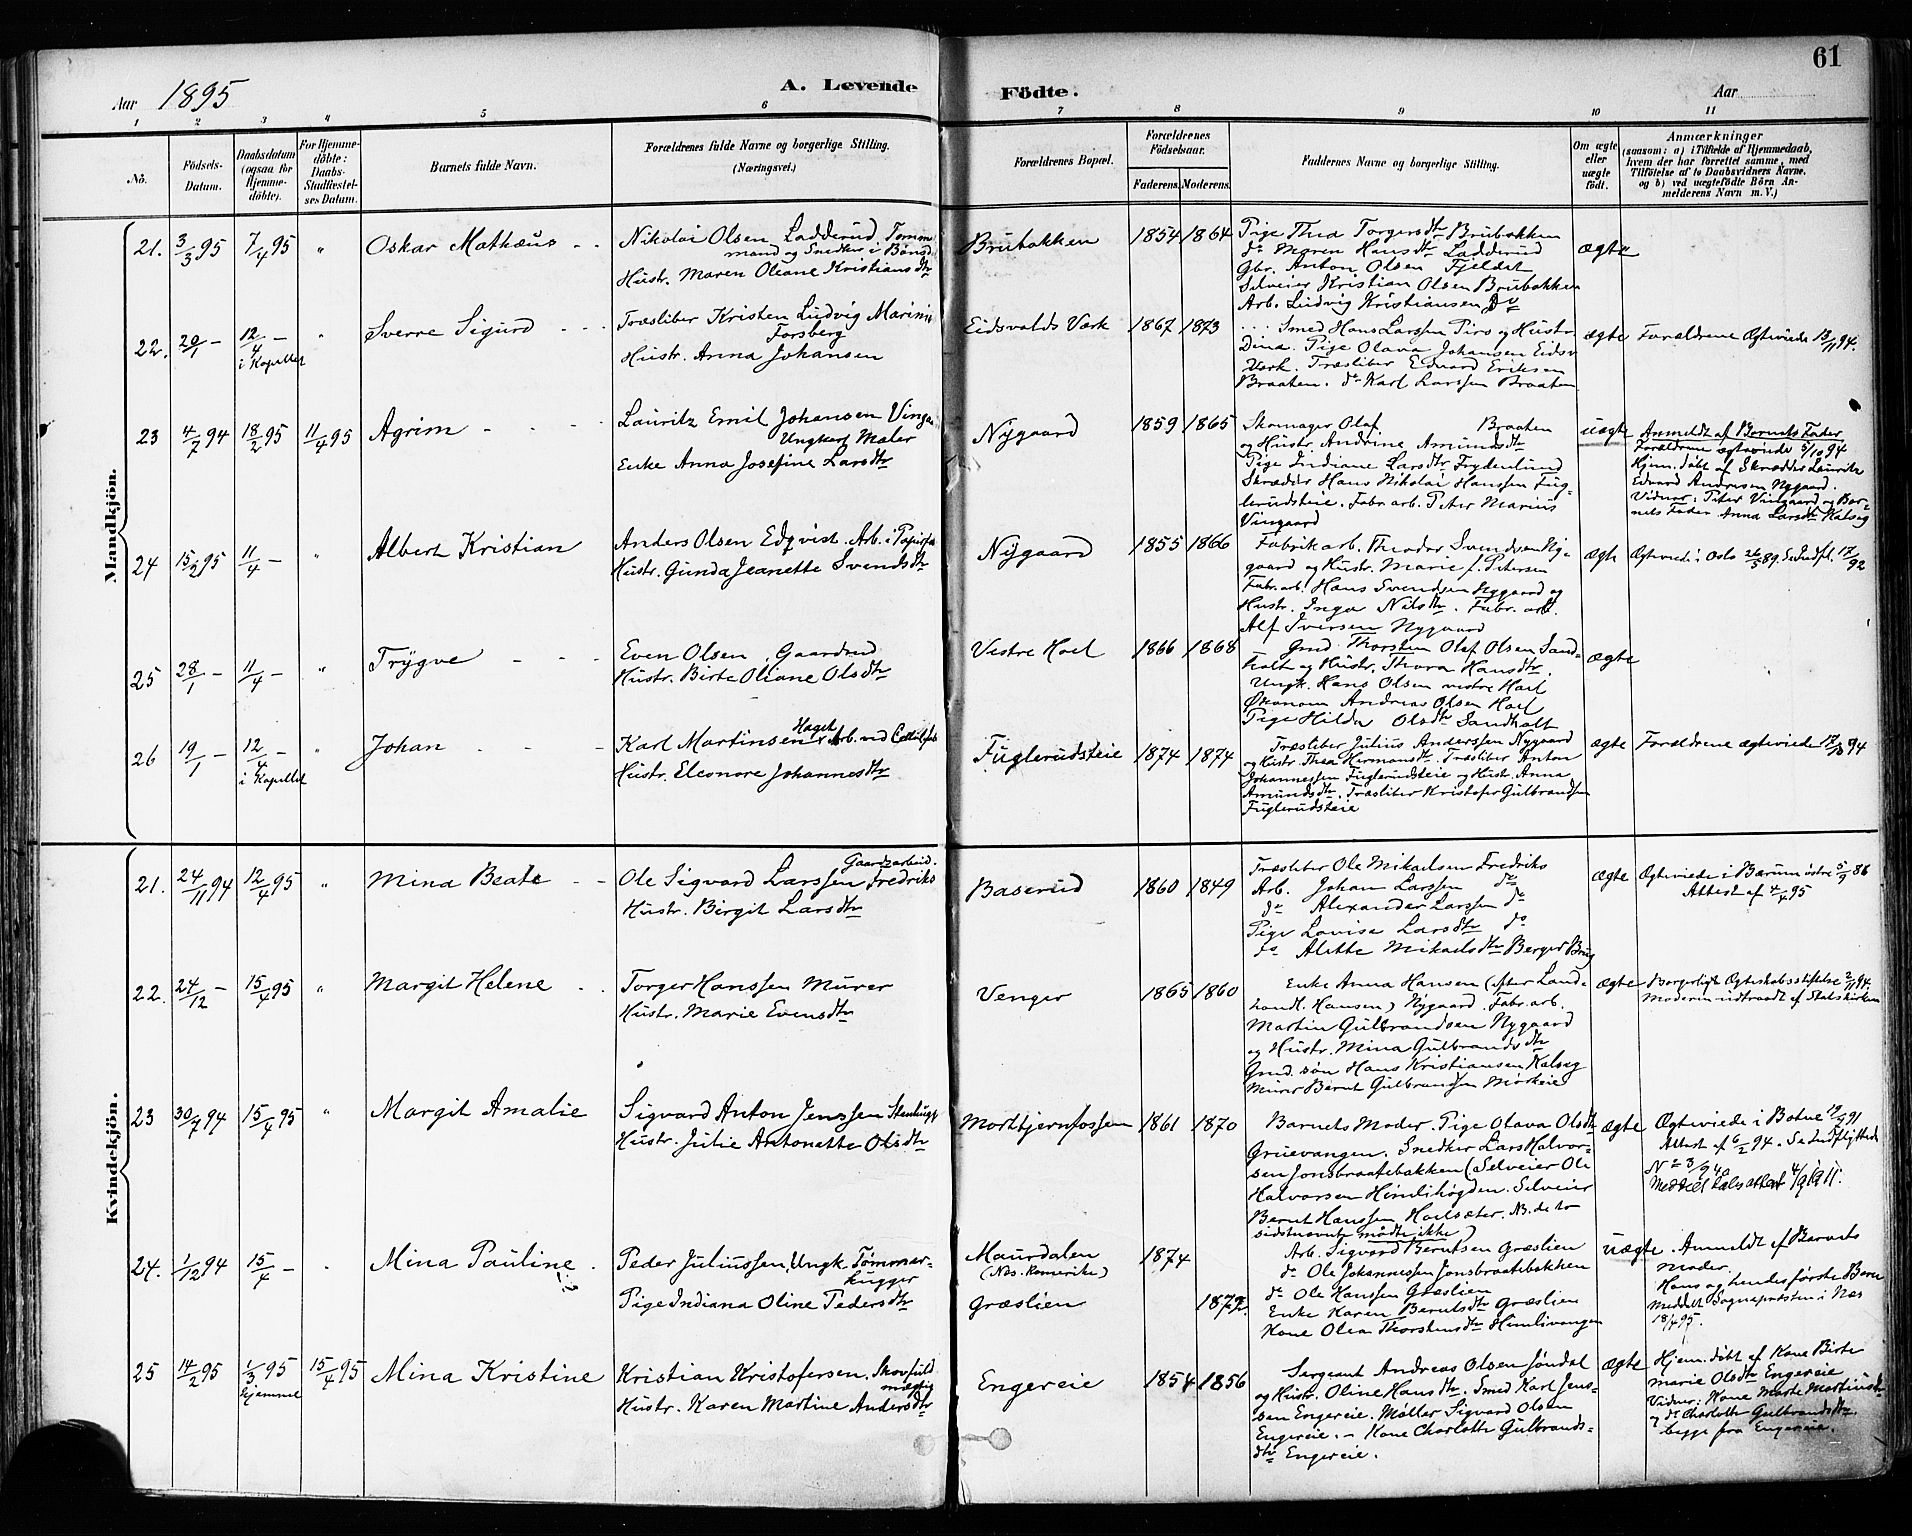 61
Aar 1895 A. Levende Födte. Aar
1 2 3 4 5 6 7 8 9 10 11
No. Födsels-Datum. Daabsdatum (ogsaa for Hjemmedöbte). For Hjemmedöbte: Daabs-Stadfæstelses Datum. Barnets fulde Navn. Forældrenes fulde Navne og borgerlige Stilling. (Næringsvei.) Forældrenes Bopæl. Forældrenes Födselsaar. Faderens. Moderens. Faddernes Navne og borgerlige Stilling. Om ægte eller uægte födt. Anmærkninger (saasom: a) i Tilfælde af Hjemmedaab, hvem der har forrettet samme, med Tilföielse af to Daabsvidners Navne, og b) ved uægtefödte Börn Anmelderens Navn m. V.)
Mandkjön.
21. 3/3 95 7/4 95 " Oskar Mathæus
Nikolai Olsen Ladderud Tømm
mand og Snedker i Bønsd
Hustr. Maren Oliane Kristiansdtr
Brubakken 1854 1864
Pige Thea Torgersdtr Brubakken
do Maren Hansdtr Ladderud
Gbr. Anton Olsen Fjeldet
Selveier Kristian Olsen Brubakken
Arb. Ludvig Kristiansen do
ægte
22. 20/1 – 12/4 – i Kapellet " Sverre Sigurd
Træsliber Kristen Ludvig Marini
Forsberg
Hustr. Anna Johansen
Eidsvolds Værk 1867 1873
Smed Hans Larssen Piro og Hustr.
Dina. Pige Olava Johansen Eidsv
Værk. Træsliber Edvard Eriksen
Braaten. do Karl Larssen Braaten
ægte Forældrene Ægteviede 13/11 94.
23 4/7 94 18/2 95 11/4 95 Agrim
Lauritz Emil Johansen Vinga
Ungkarl Maler
Enke Anna Josefine Larsdtr
Nygaard 1859 1865
Skomager Olaf Braaten
og Hustr. Andrine Amundsdtr
Pige Indiane Larsdtr Frydenlund
Skrædder Hans Nikolai Hanssen Fug-
lerudsteie. Fabr. arb. Peter Marius
Vingaard
uægte
Anmeldt af Barnets Fader
Forældrene ægteviede 5/10 94
Hjem. døbt af Skrædder Lauritz
Edvard Andresen Nygaard.
Vidner: Peter Vingaard og Bar-
nets Fader Anna Larsdtr Kalseg
24 15/2 95 11/4 – " Albert Kristian
Anders Olsen Edqvist. Arb. i Papirfa
Hustr. Gunda Jeanette Svendsdtr
Nygaard 1855 1866
Fabrikarb. Theodor Svendsen Ny-
gaard og Hustr. Marie f. Petersen
Fabr. arb. Hans Svendsen Nygaard og
Hustr. Inga Nilsdtr. Fabr. arb.
Alf Iversen Nygaard
ægte Ægteviede i Oslo 26/5 89. Se Indfl. 17/92
25 28/1 – 11/4 – " Trygve
Even Olsen, Gaardred
Hustr. Birte Oliane Olsdtr
Vestre Hoel 1866 1868
Gmd. Thorsten Olaf Olsen Sand-
holt og Hustr. Thora Hansdtr.
Ungk. Hans Olsen vestre Hoel
Økonom Andreas Olsen Hoel
Pige Hilda Olsdtr Sandholt
ægte
26 19/1 – 12/4 – i Kapellet " Johan
Karl Martinsen Haget Arb. ved Cellulfab
Hustr. Eleonore Johannesdtr
Fuglerudsteie 1874 1874
Træsliber Julius Anderssen Nygaard
og Hustr. Thea Hermansdtr. Træsliber Anton
Johannessen Fuglerudsteie og Hustr. Anna
Amundsdtr. Træsliber Kristofer Gulbrandsen
Fuglerudsteie
ægte Forældrene ægteviede 17/10 94
Kvindekjön.
21. 24/11 94 12/4 95 " Mina Beate
Gaardsarbeid.
Ole Sigvard Larssen Fredriks
Hustr. Birgit Larsdtr
Baserud 1860 1849
Træsliber Ole Mikaelsen Fredriks
Arb. Johan Larssen do
do Alexander Larssen do
Pige Lovise Larsdtr do
do Alette Mikaelsdtr Berger Brug
ægte Ægteviede i Bærum østre 5/9 86
Attest af 4/4 95
22. 24/12 – 15/4 95 " Margit Helene
Torger Hanssen Murer
Hustr. Marie Evensdtr
Venger 1865 1860
Enke Anna Hansen (efter Land-
handl. Hansen) Nygaard. Fabr. arb.
Martin Gulbrandsen Nygaard
og Hustr. Mina Gulbrandsdtr
Gmd. søn Hans Kristiansen Kalseg
Murer Bernt Gulbrandsen Mørkeie
ægte Borgerligt Ægteskabsstiftelse 2/11 94.
Moderen udtraadt af Statskirken
23 30/7 94 15/4 95 " Margit Amalie
Sigvard Anton Jenssen Stenhugg
Hustr. Julie Antonette Olsdtr
Mortkjernfossen 1861 1870
Barnets Moder. Pige Olava Olsdtr
Gruevangen. Snedker Lars Halvor-
sen Jonsbraatebakken (Selveier Ole
Halvorsen Himlihøgden. Selveier
Bernt Hanssen Hoelsæter. NB. de to
sidstnævnte mødte ikke)
ægte Ægteviede i Botne 12/4 91
Attest af 6/2 94. Se Indflyttede
No 3/94
Meddelt daabsattest 4/9 1911.
24. 1/12 94 15/4 – " Mina Pauline
Peder Juliussen, Ungk. Tømmer-
hugger
Pige Indiana Oline Pedersdtr
Maurdalen 1874
(Næs. Romerike)
Græslien 1872.
Arb. Sigvard Berntsen Græslien
do Ole Johannessen Jonsbraatebakken
do Ole Hanssen Græslien
Enke Karen Berntsdtr Græslien
Kone Olea Thorstensdtr Himlivangen
uægte. Anmeldt af Barnets
Moder.
Hans og hendes første Barn
Meddelt Sognepræsten i Næs
18/4 95.
25 14/2 95 1/3 95 Hjemme 15/4 95 Mina Kristine
Kristian Kristofersen. Skovfuld
mægtig
Hustr. Karen Martine Andersdtr
Engereie 1854 1856
Sergeant Andreas Olsen Jøndal
og Hustr. Oline Hansdtr. Smed Karl Jens-
sen Engereie. Møller Sigvard Olsen
Engereie. – Kone Charlotte Gulbrands-
dtr Engereie.
ægte Hjem. døbt af Kone Birte
Marie Olsdtr Engereie
Vidner: Kone Marte Martinsdtr
og do Charlotte Gulbrandsdtr.
begge fra Engereie.